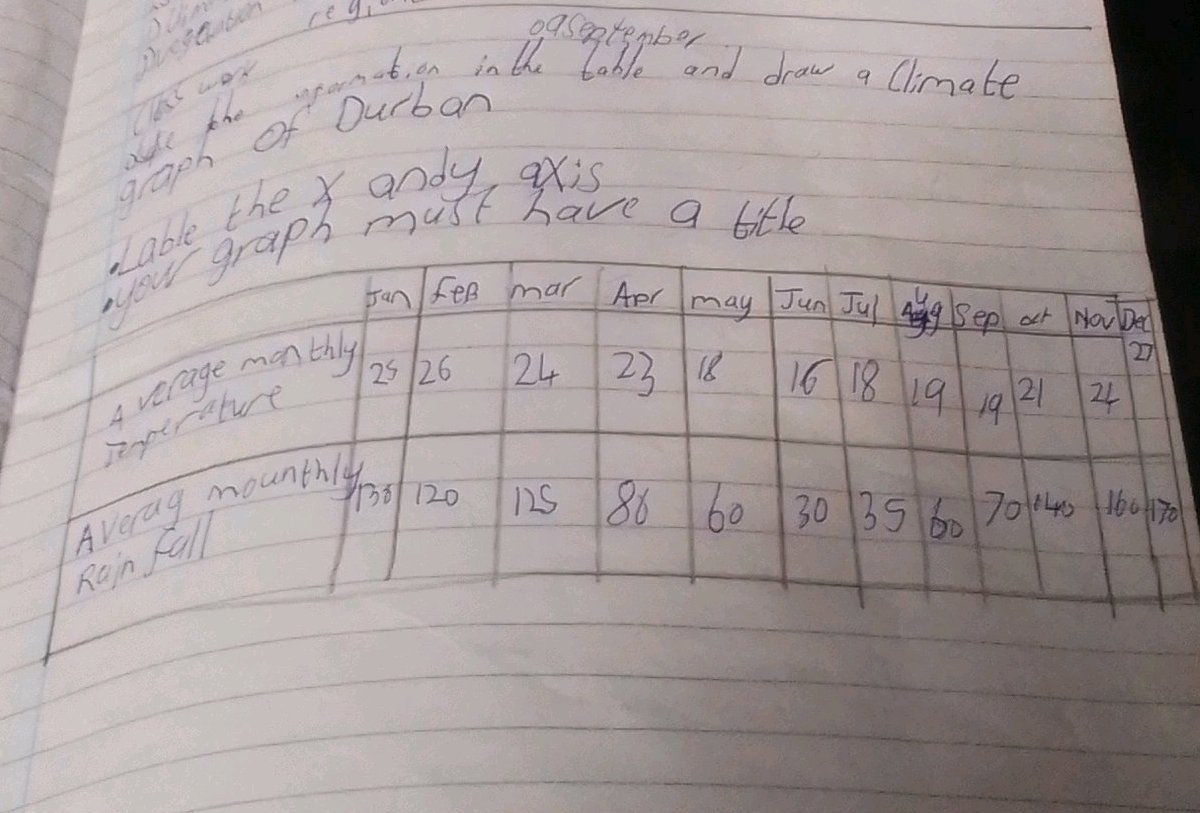 region
09 September
Class work
use the information in the table and draw a Climate
graph of Durban
•Lable the x and y axis
•your graph must have a title
Jan Feb mar Apr may Jun Jul Aug Sep oct Nov Dec
Average monthly Temperature 25 26 24 23 18 16 18 19 19 21 24 27
Averag mounthly Rain fall 130 120 125 86 60 30 35 60 70 140 160 170